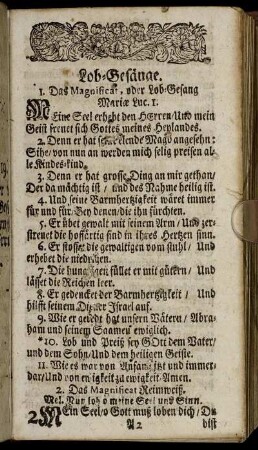 Lob-Gesänge.
1. Das Magnificat, oder Lob-Gesang
Mariæ Luc. 1.
MEine Seel erhebt den HErren/Und mein
Geist freuet sich Gottes meines Heylandes.
2. Denn er hat seine elende Magd angesehn:
Sihe/von nun an werden mich selig preisen al-
le Kindes-kind.
3. Denn er hat grosse Ding an mir gethan/
Der da mächtig ist/und des Nahme heilig ist.
4. Und seine Barmhertzigkeit wäret immer
für und für/Bey denen/die ihn fürchten.
5. Er übet gewalt mit seinem Arm/Und zer-
streuet die hoffärtig sind in ihres Hertzen sinn.
6. Er stosset die gewaltigen vom stuhl/Und
erhebet die niedrigen.
7. Die hungrigen füllet er mit gütern/Und
lässet die Reichen leer.
8. Er gedencket der Barmhertzigkeit/Und
hilfft seinem Diener Israel auf.
9. Wie er geredt hat unsern Vätern/Abra-
ham und seinem Saamen ewiglich.
*10. Lob und Preiß sey GOtt dem Vater/
und dem Sohn/Und dem heiligen Geiste.
11. Wie es war von Anfang jetzt und immer-
dar/Und von ewigkeit zu ewigkeit Amen.
2. Das Magnificat Reimweiß.
Mel. Nun lob meine Seel und Sinn.
MEin Seel/o Gott muß loben dich/Du
A2 bist